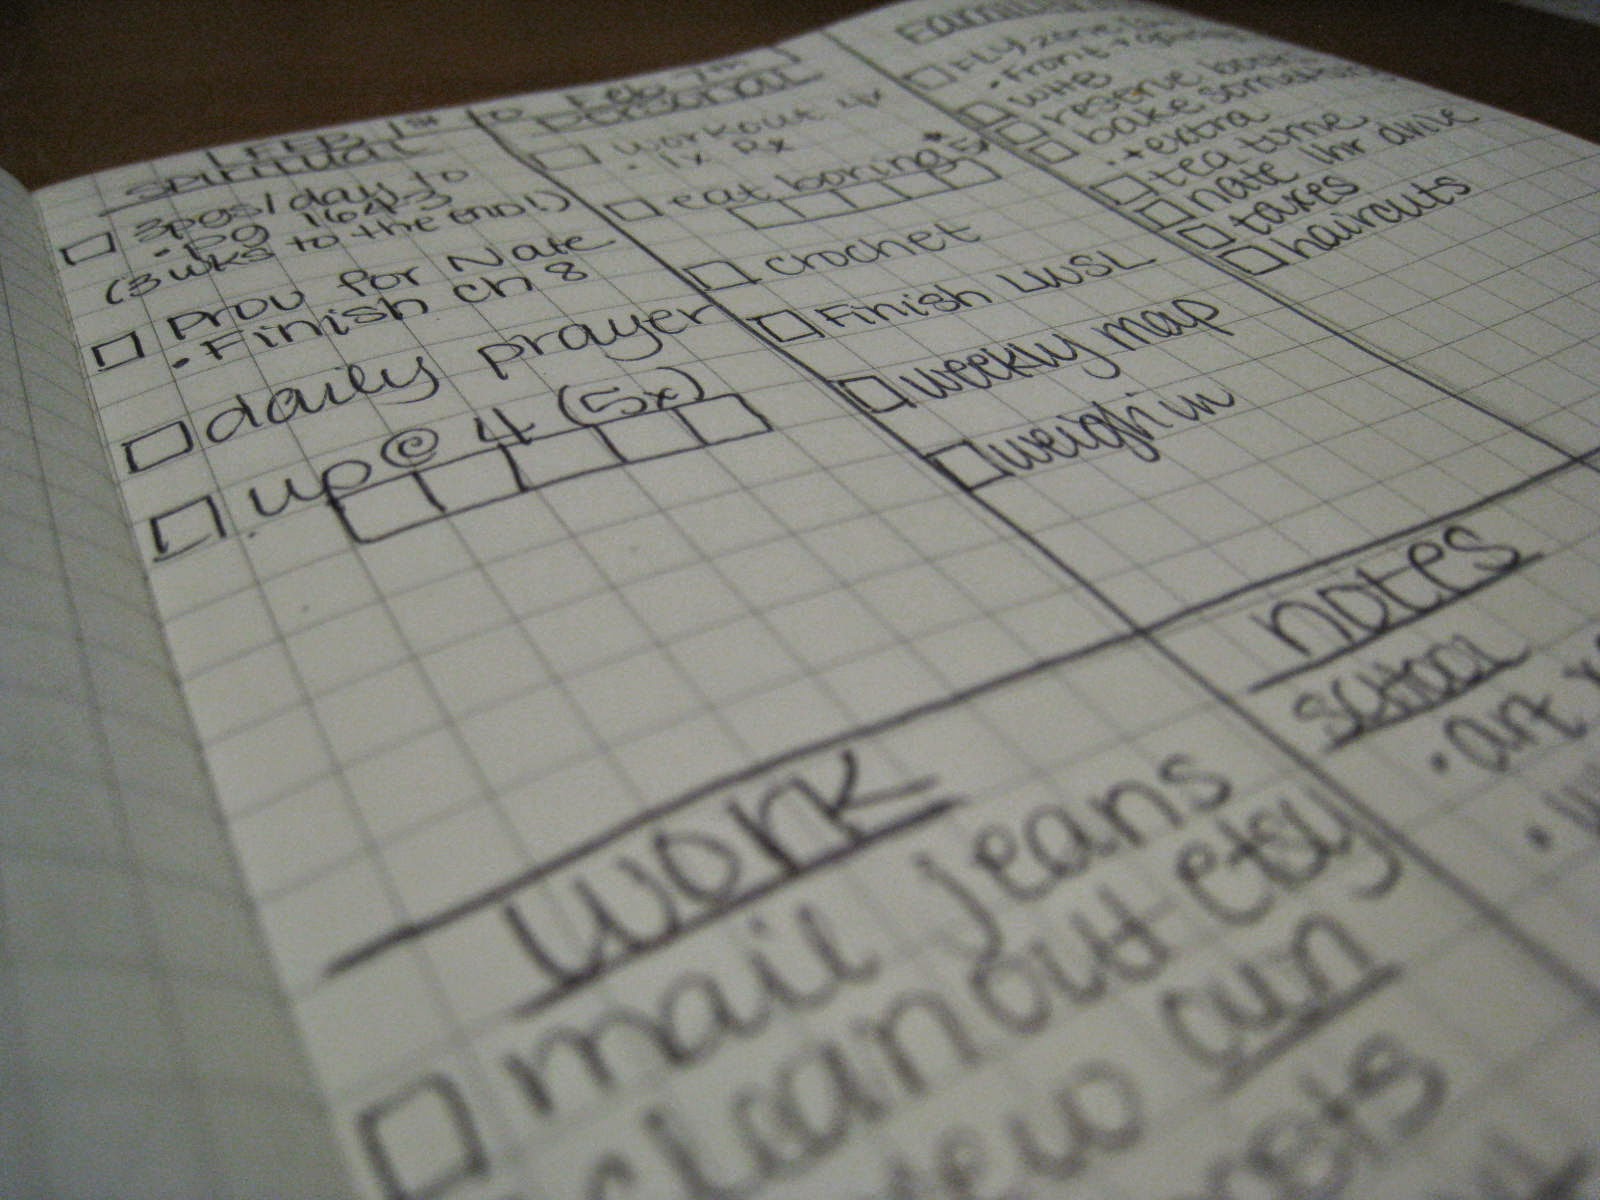 FEB 1st to Feb 7th
spiritual
3pgs/day to
• pg 164-3
(3 wks to the END!)
Prov for Nate
• Finish ch 8
daily prayer
up@ 4 (5x)
personal
workout 4x
• 1x Rx
eat boring* 5x
crochet
Finish LWSL
weekly map
weigh in
Family
FLY zone
• front +
WHB
reserve books
bake something
• + extra
tea time
nate 1hr
taxes
haircuts
work
mail jeans
clean out etsy
own
notes
SCHOOL
• art